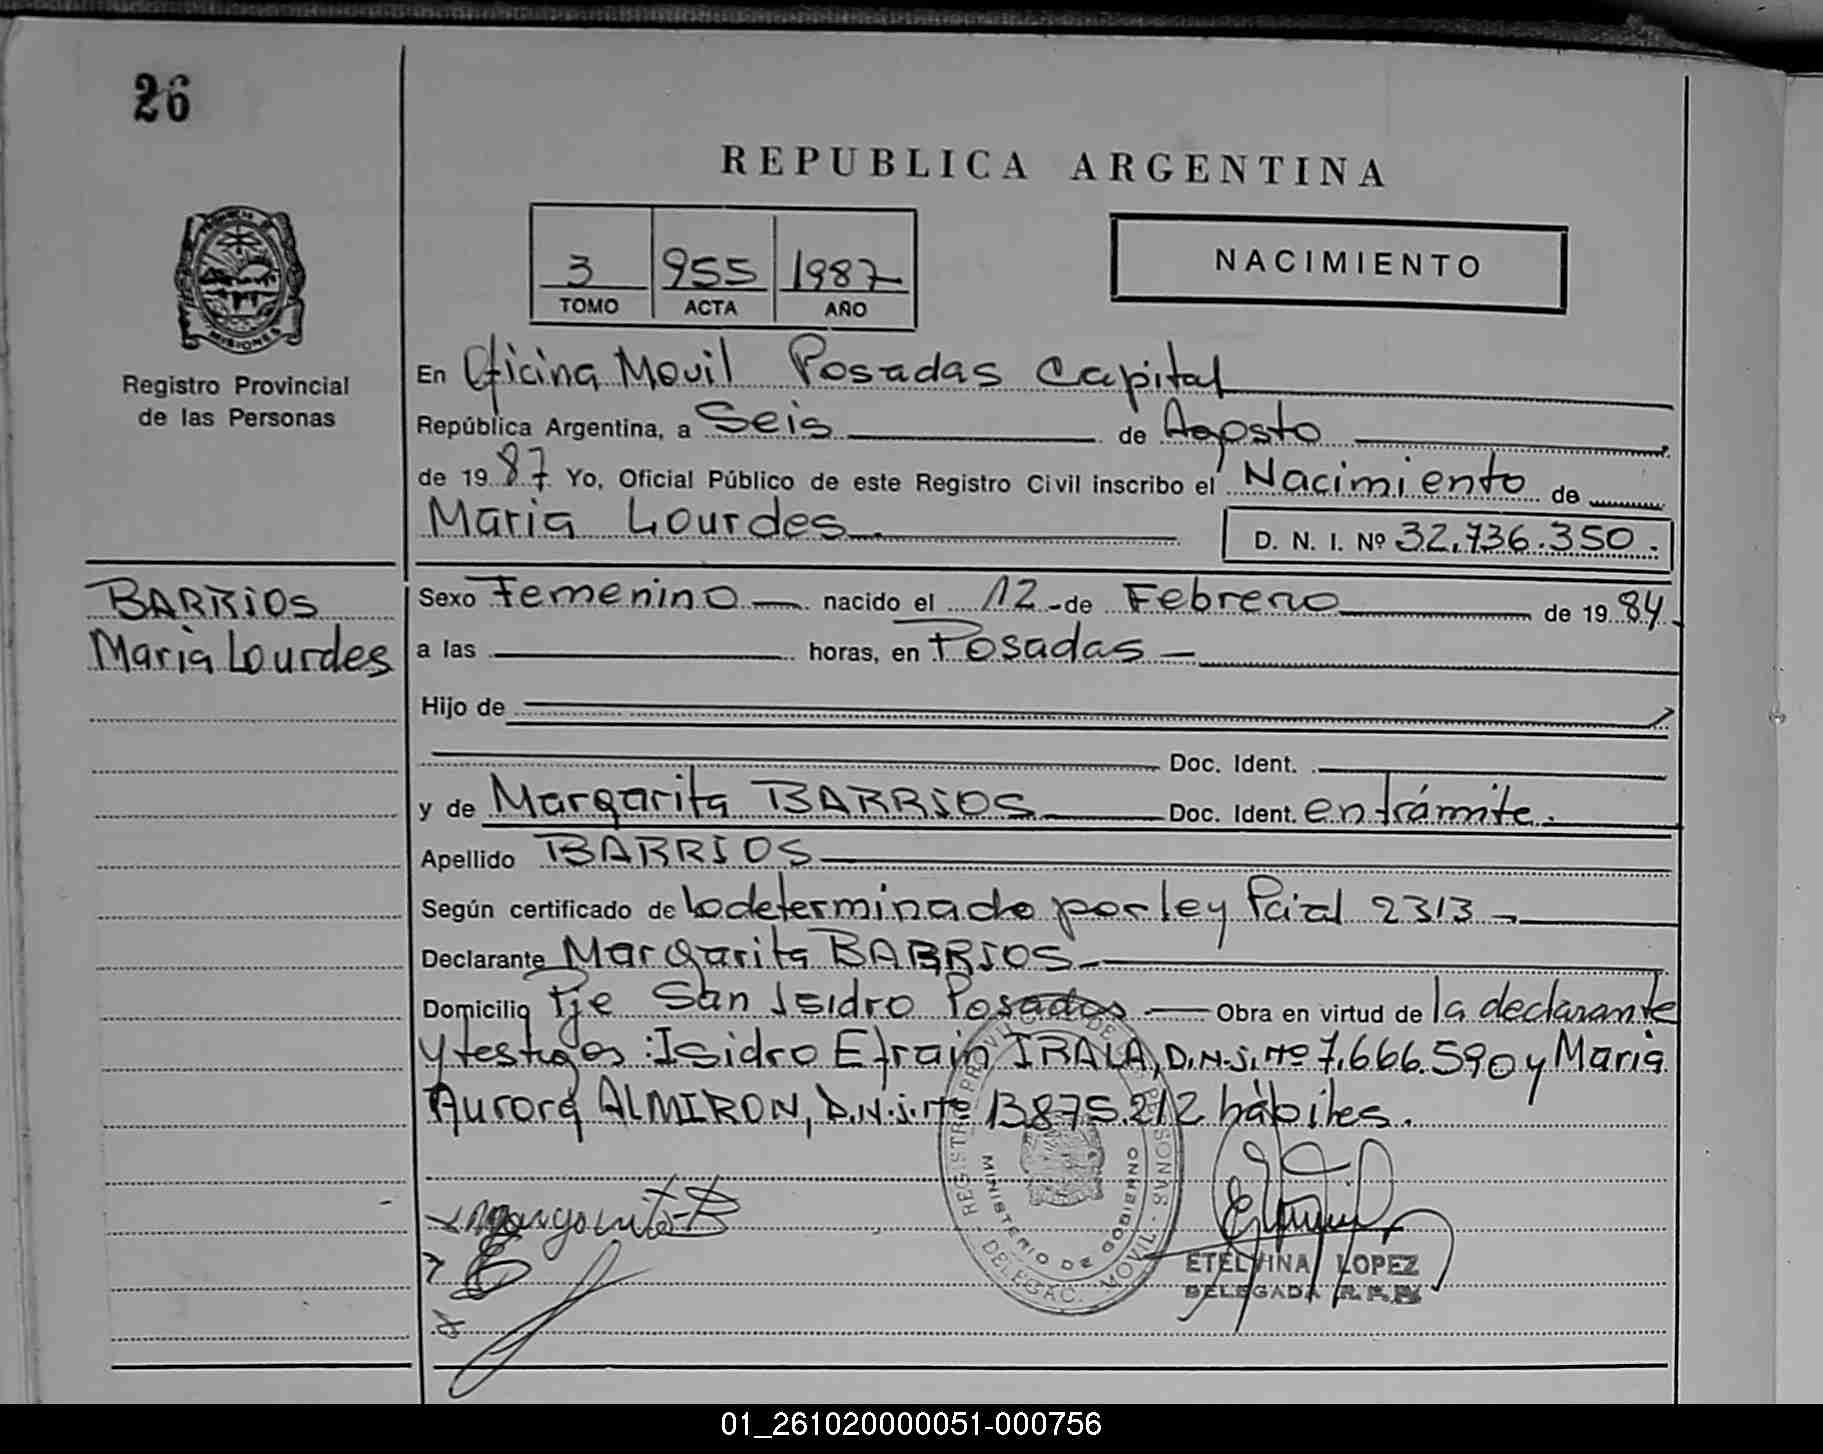 26
REPUBLICA ARGENTINA
3 955 1987
TOMO ACTA AÑO
NACIMIENTO
MISIONES
Registro Provincial
de las Personas
En Oficina Movil Posadas Capital
República Argentina, a Seis de Agosto
de 1987 Yo, Oficial Público de este Registro Civil inscribo el Nacimiento de
Maria Lourdes
D. N. I. Nº 32.736.350.-
BARRIOS
Maria Lourdes
Sexo Femenino nacido el 12 de Febrero de 1984
a las horas, en Posadas
Hijo de
Doc. Ident.
y de Margarita BARRIOS Doc. Ident. en trámite.
Apellido BARRIOS
Según certificado de lo determinado por ley Pcial 2313
Declarante Margarita BARRIOS
Domicilio Pje San Isidro Posadas Obra en virtud de la declarante
y testigos: Isidro Efrain IRALA, D.N.I. Nº 7.666.590 y Maria
Aurora ALMIRON, D.N.I. Nº 13.875.212 hábiles.
REGISTRO PROVINCIAL DE LAS PERSONAS
MINISTERIO DE GOBIERNO
DELEGAC. MOVIL
Margarita B
ETELVINA LOPEZ
DELEGADA R.P.P.
01_261020000051-000756